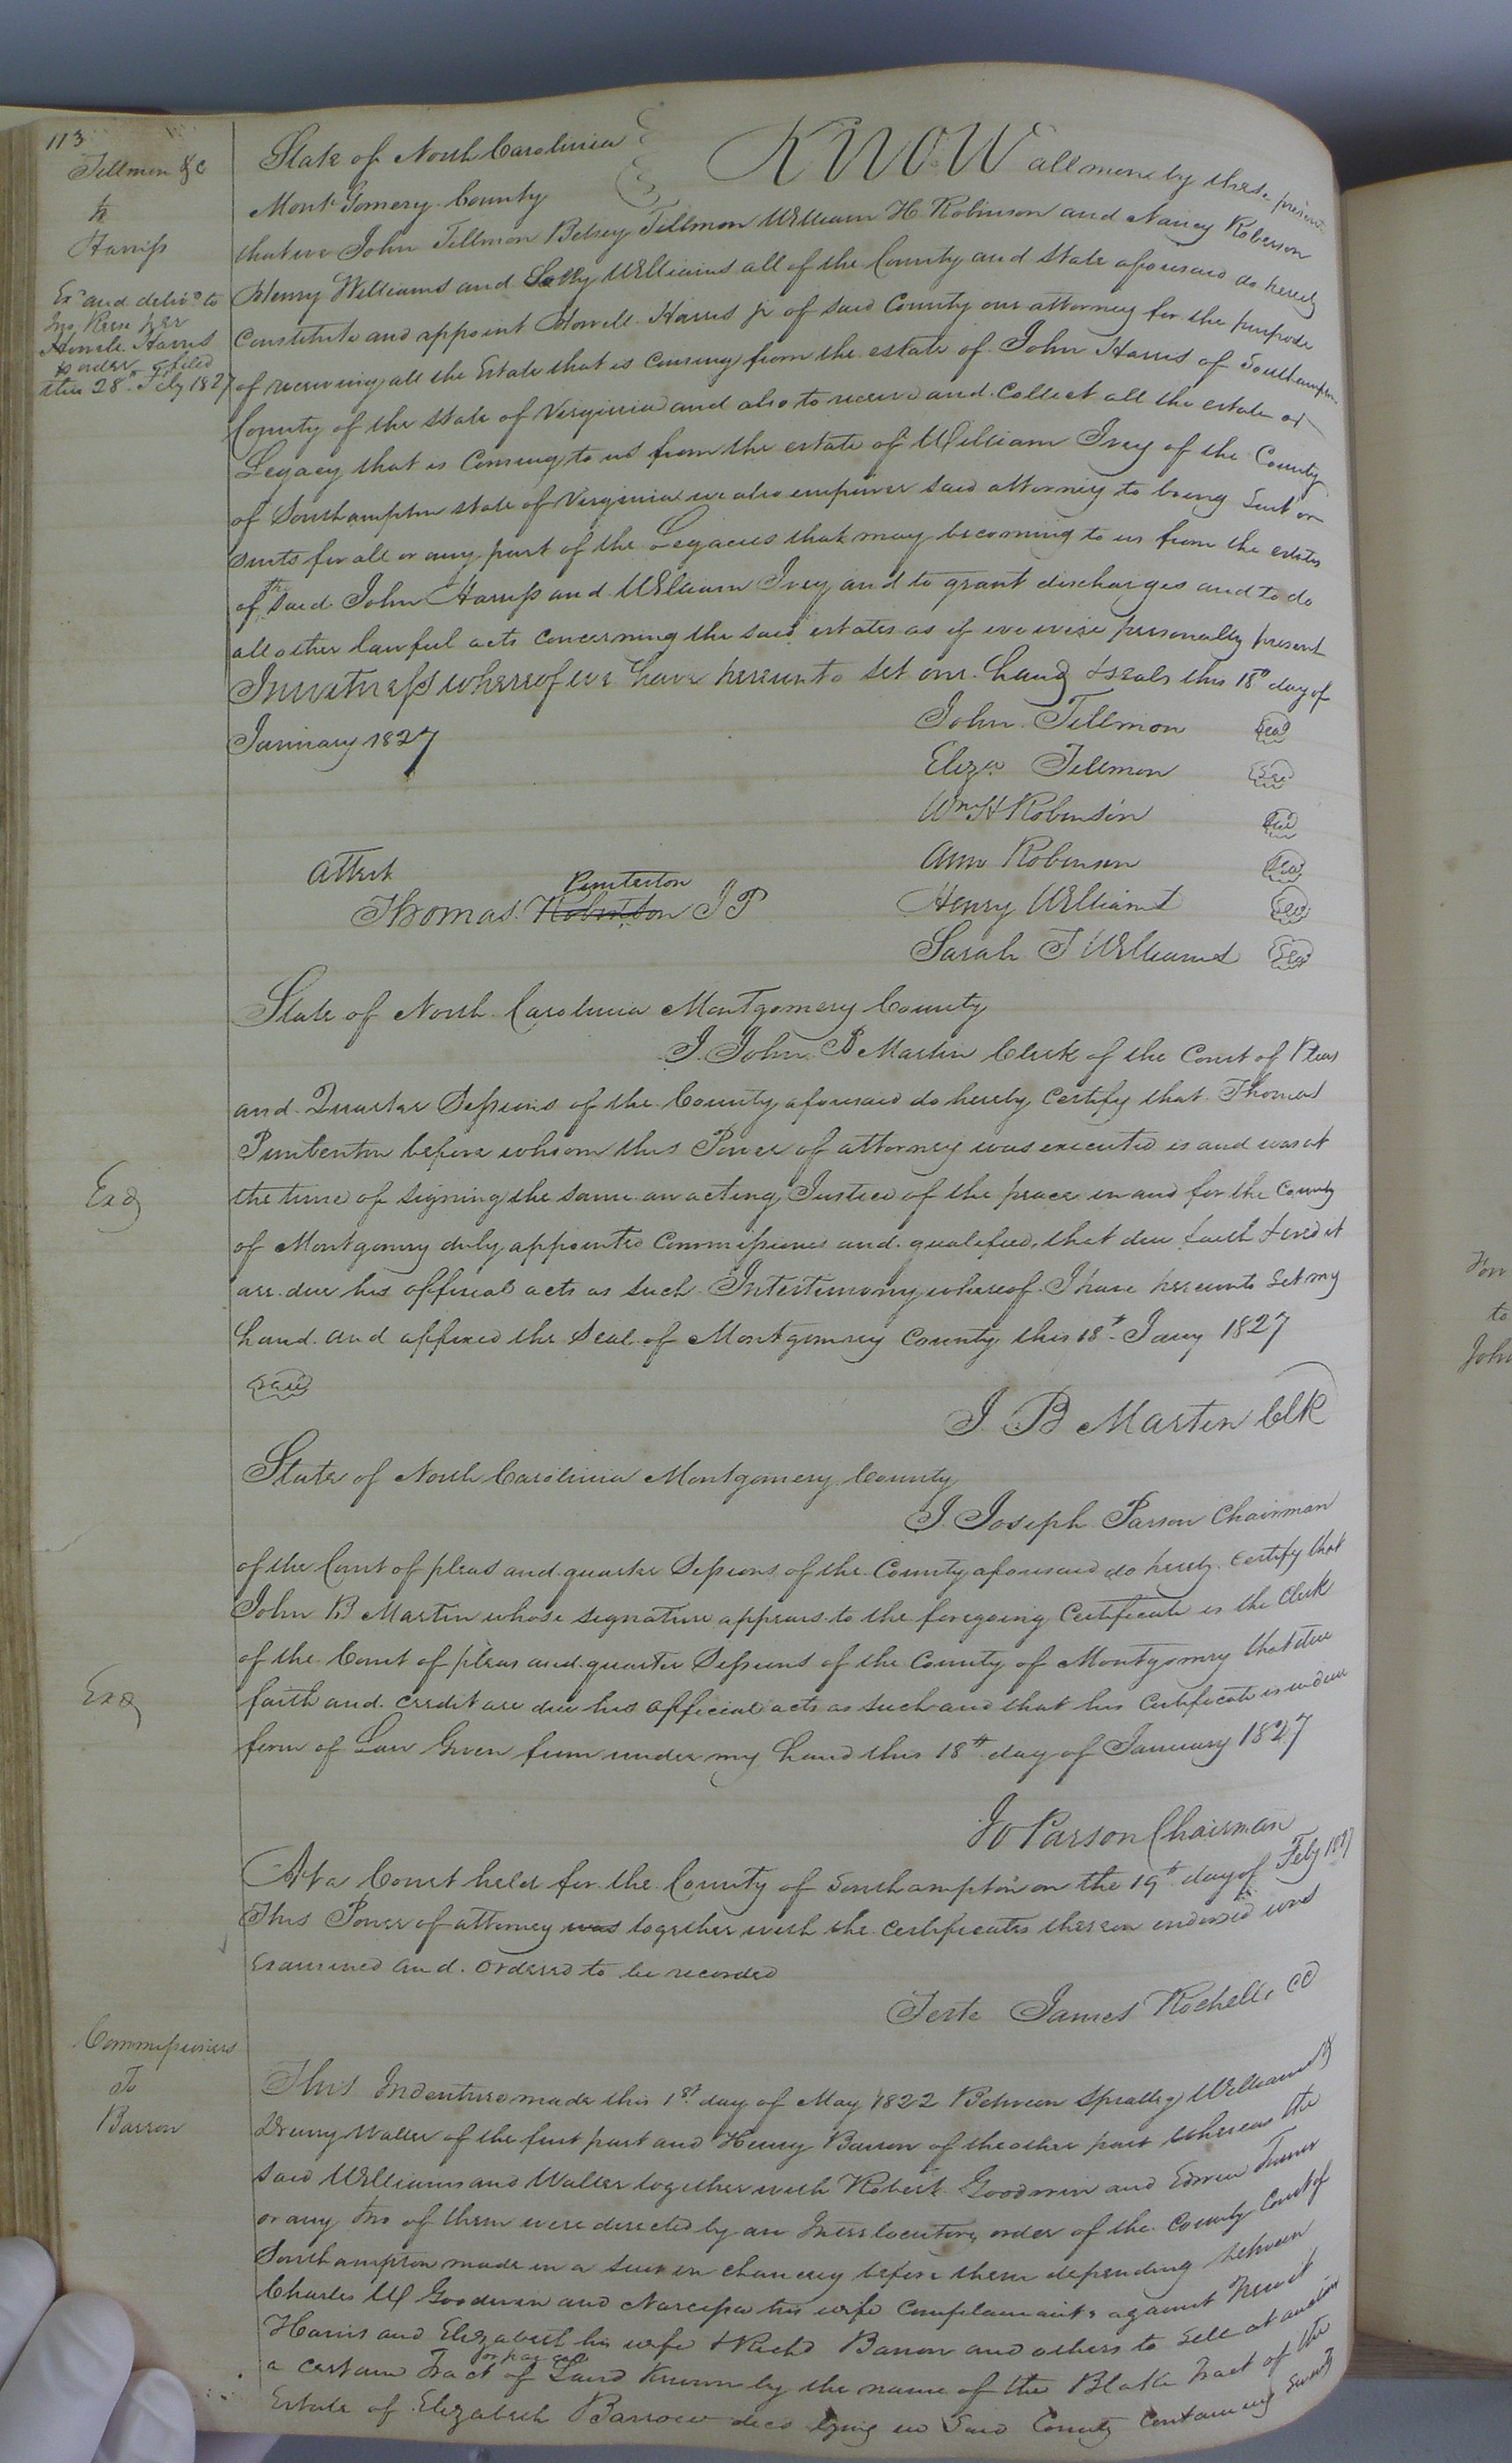 113
Tillmon &c
to
Harriss
Exd and delivd to
Jno. Rese per
Howell Harris
order filed
this 28 Feby 1827
State of North Carolina
Montgomery County
KNOW all men by these presents
that we John Tillmon Betsey Tillmon William H. Robinson and Nancy Roberson
Henry Williams and Sally Williams all of the County and State aforesaid do hereby
Constitute and appoint Howell Harris jr of said County our attorney for the purpose
of receiving all the Estate that is Coming from the estate of John Harris of Southampton
County of the State of Virginia and also to receive and Collect all the estate or
Legacy that is Coming to us from the estate of William Ivey of the County
of Southampton state of Virginia we also empower said attorney to bring Suit or
Suits for all or any part of the Legacies that may be coming to us from the estates
of the said John Harriss and William Ivey and to grant discharges and to do
all other lawful acts Concerning the said estates as if we were personally present
In witness whereof we have hereunto set our hand & seals this 18th day of
January 1827
John Tillmon Seal
Eliza Tillmon Seal
Wm H Robinson Seal
Ann Robinson Seal
Attest
Penterton
Thomas Robinson J P
Henry Williams Seal
Sarah T Williams Seal
State of North Carolina Montgomery County
I John B Martin Clerk of the Court of Pleas
and Quarter Sessions of the County aforesaid do hereby Certify that Thomas
Penterton before whom this Power of attorney was executed is and was at
Exd
the time of signing the same an acting Justice of the peace in and for the County
of Montgomery duly appointed Commissioned and qualified, that due faith & credit
are due his official acts as such In testimony whereof I have hereunto Set my
hand and affixed the Seal of Montgomery County this 18th Jany 1827
Seal
J B Martin Clk
State of North Carolina Montgomery County
I Joseph Parson Chairman
of the Court of pleas and quarter Sessions of the County aforesaid do hereby Certify that
John B Martin whose signature appears to the foregoing Certificate is the Clerk
of the Court of pleas and quarter Sessions of the County of Montgomery that due
Exd
faith and credit are due his official acts as such and that his Certificate is in due
form of Law Given from under my hand this 18th day of January 1827
Jo Parson Chairman
At a Court held for the County of Southampton on the 19th day of Feby 1827
This Power of attorney was together with the Certificates thereon endorsed was
Examined and ordered to be recorded
Teste James Rochelle CC
Commissioners
To
Barron
This Indenture made this 1st day of May 1822 Between Spratley Williams &
Drewry Waller of the first part and Henry Barron of the other part whereas the
said Williams and Waller together with Robert Goodwin and Edwin Turner
or any two of them were directed by an Interlocutory order of the County Court of
Southampton made in a suit in chancery before them depending between
Charles W Goodwin and Narcissa his wife Complainants against Newit
Harris and Elizabeth his wife & Richd Barron and others to Sell at auction
or parcel
a certain Tract of Land Known by the name of the Blake Tract of the
Estate of Elizabeth Barrow decd lying in Said County Containing
to
John